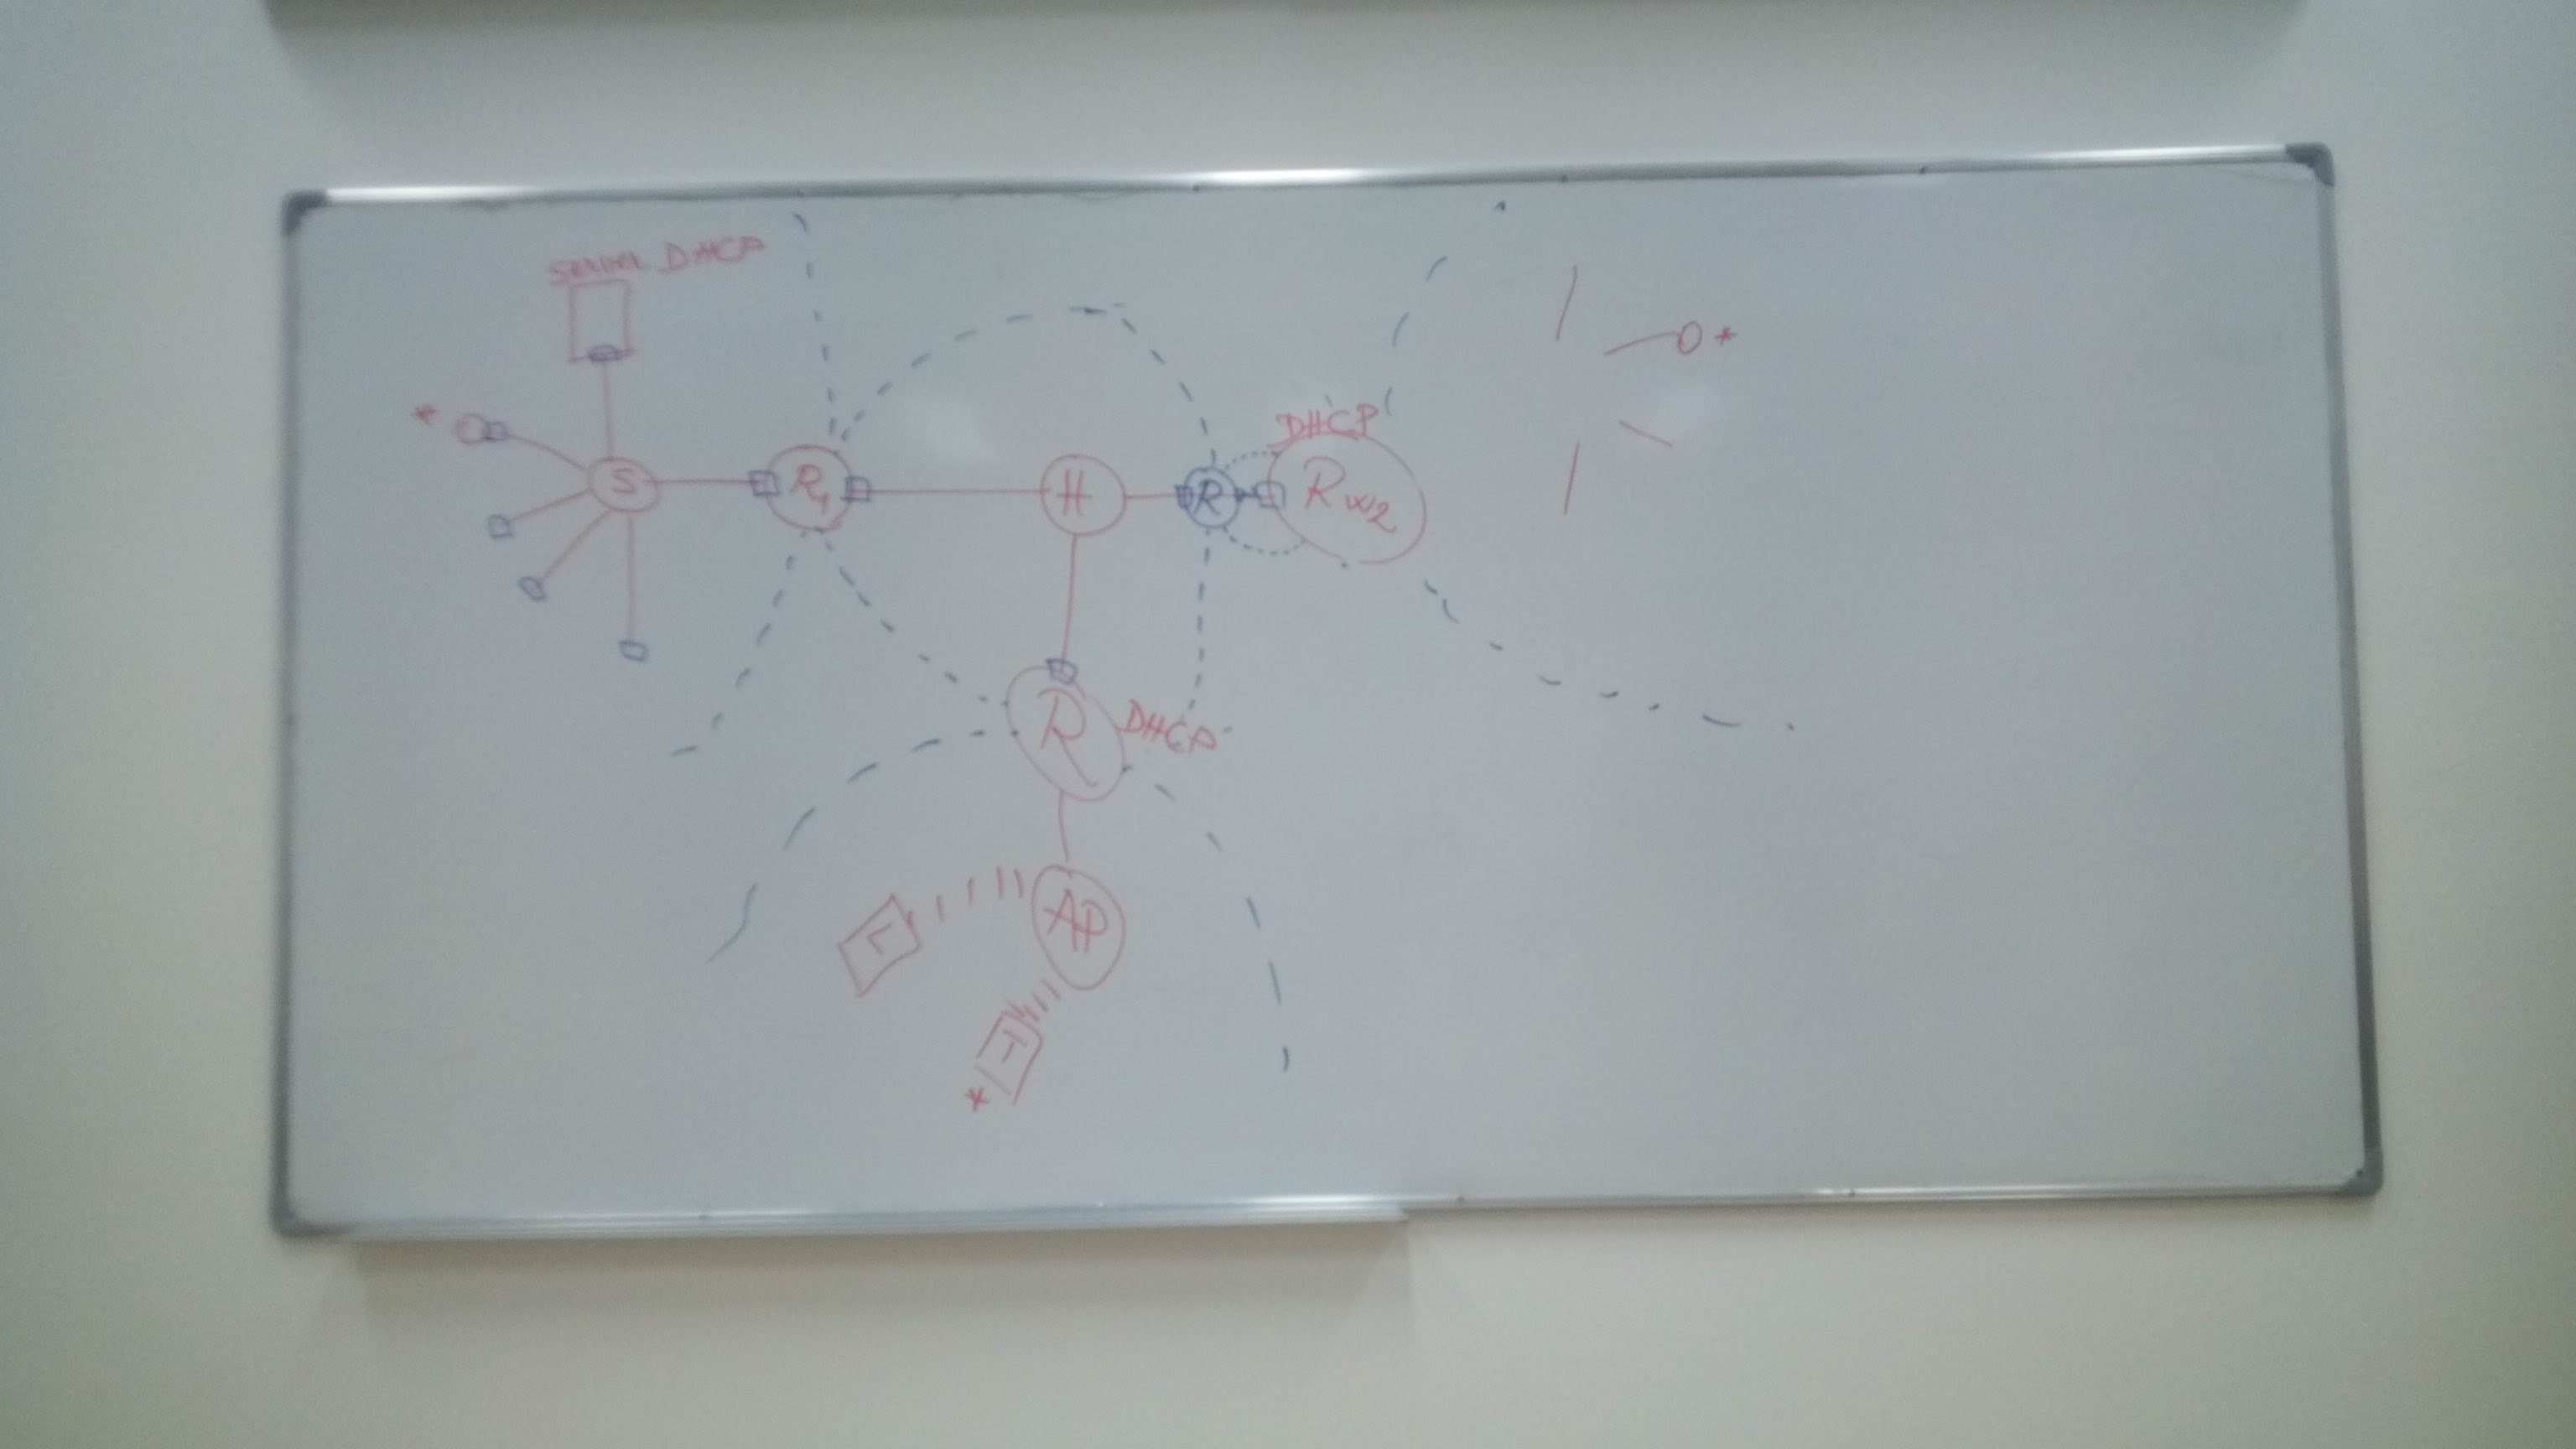 server DHCP
*
S
R1
H
R
DHCP
RW2
*
R
DHCP
AP
*